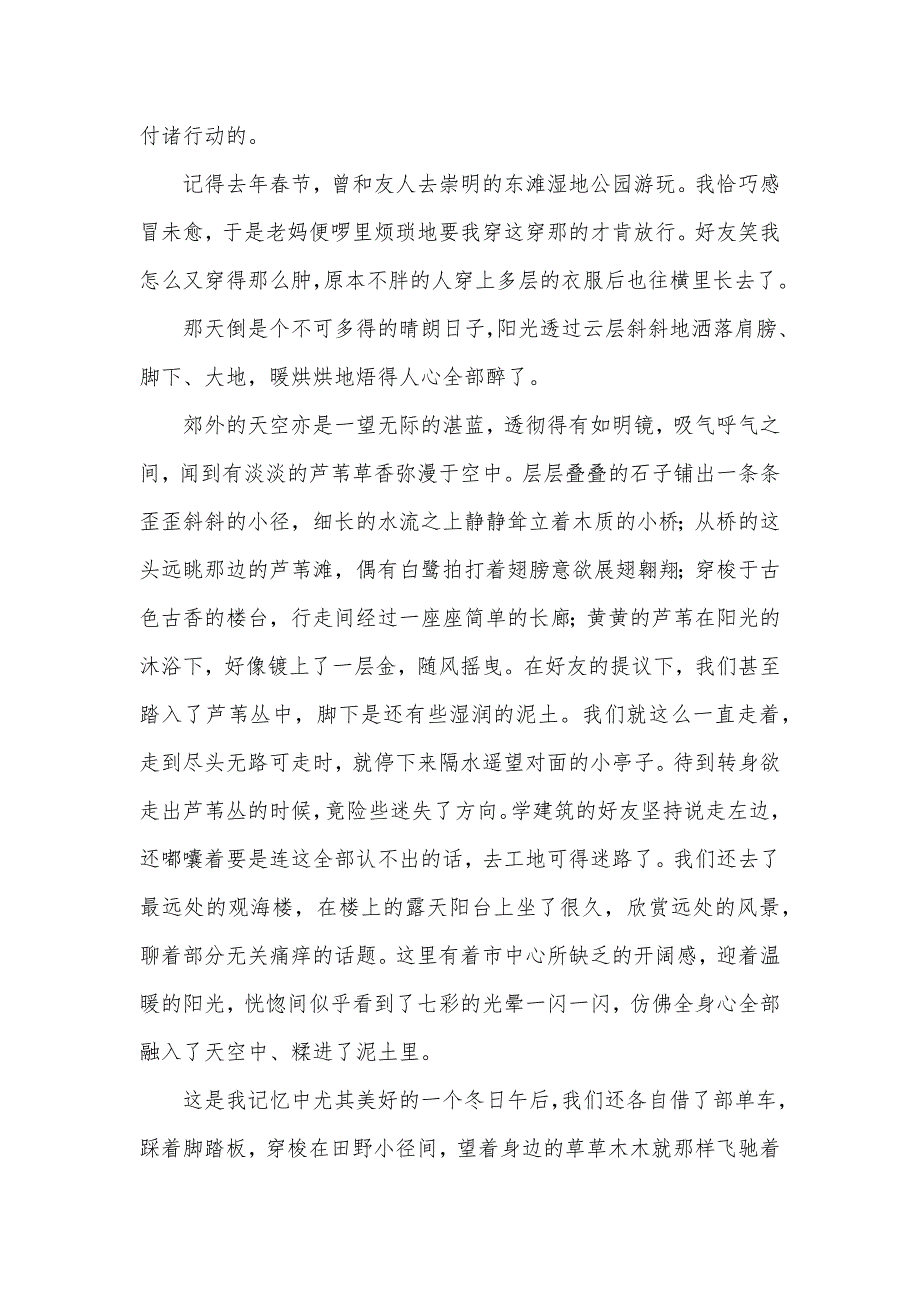 付诸行动的。
记得去年春节，曾和友人去崇明的东滩湿地公园游玩。我恰巧感
冒未愈，于是老妈便啰里烦琐地要我穿这穿那的才肯放行。好友笑我
怎么又穿得那么肿，原本不胖的人穿上多层的衣服后也往横里长去了。
那天倒是个不可多得的晴朗日子，阳光透过云层斜斜地洒落肩膀、
脚下、大地，暖烘烘地焐得人心全部醉了。
郊外的天空亦是一望无际的湛蓝，透彻得有如明镜，吸气呼气之
间，闻到有淡淡的芦苇草香弥漫于空中。层层叠叠的石子铺出一条条
歪歪斜斜的小径，细长的水流之上静静耸立着木质的小桥；从桥的这
头远眺那边的芦苇滩，偶有白鹭拍打着翅膀意欲展翅翱翔；穿梭于古
色古香的楼台，行走间经过一座座简单的长廊；黄黄的芦苇在阳光的
沐浴下，好像镀上了一层金，随风摇曳。在好友的提议下，我们甚至
踏入了芦苇丛中，脚下是还有些湿润的泥土。我们就这么一直走着，
走到尽头无路可走时，就停下来隔水遥望对面的小亭子。待到转身欲
走出芦苇丛的时候，竟险些迷失了方向。学建筑的好友坚持说走左边，
还嘟囔着要是连这全部认不出的话，去工地可得迷路了。我们还去了
最远处的观海楼，在楼上的露天阳台上坐了很久，欣赏远处的风景，
聊着部分无关痛痒的话题。这里有着市中心所缺乏的开阔感，迎着温
暖的阳光，恍惚间似乎看到了七彩的光晕一闪一闪，仿佛全身心全部
融入了天空中、糅进了泥土里。
这是我记忆中尤其美好的一个冬日午后，我们还各自借了部单车，
踩着脚踏板，穿梭在田野小径间，望着身边的草草木木就那样飞驰着